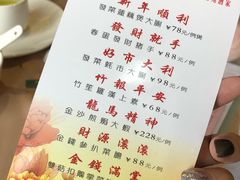 新年順利
發菜蓮藕煲大腩 ¥78元/例煲
發財就手
春蛋發財豬手 ¥88元/例
好市大利
發菜蚝市大腩 ¥98元/例
竹報平安
竹笙羅漢上素 ¥68元/例
龍馬精神
金沙煎焗大蝦 ¥228元/例
財源滾滾
¥88元/例
金錢滿堂